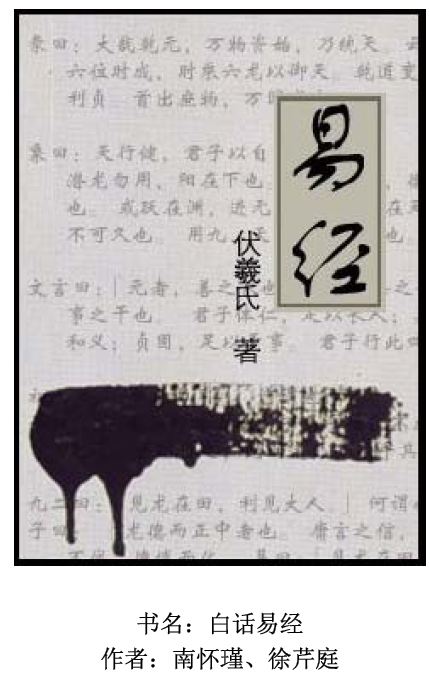 彖曰：大哉乾元，万物资始，乃统天。云
六位时成，时乘六龙以御天。乾道变
利贞。首出庶物，万
象曰：天行健，君子以自
潜龙勿用，阳在下也
也。 或跃在渊，进无
不可久也。 用九 也
易经
伏羲氏 著
文言曰：「元者，善之 也 之
事之干也。 君子体仁，足以长人；
和义；贞固，足以 事。 君子行此四
九二曰：「见龙在田，利见大人。」何谓
子曰 龙德而正中者也。 庸言之信，
书名：白话易经
作者：南怀瑾、徐芹庭